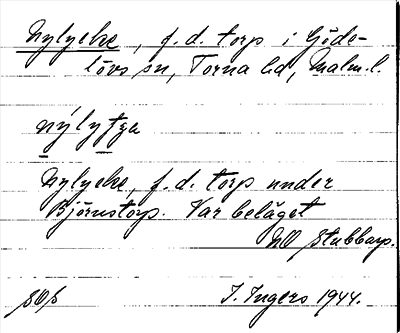 Nylycke, f.d. torp i Göde-
lövs sn, Torna hd, Malm.l.
nýlytja
Nylycke, f.d. torp under
Björnstorp. Var beläget
NO Stubbarp.
I. Ingers 1944.